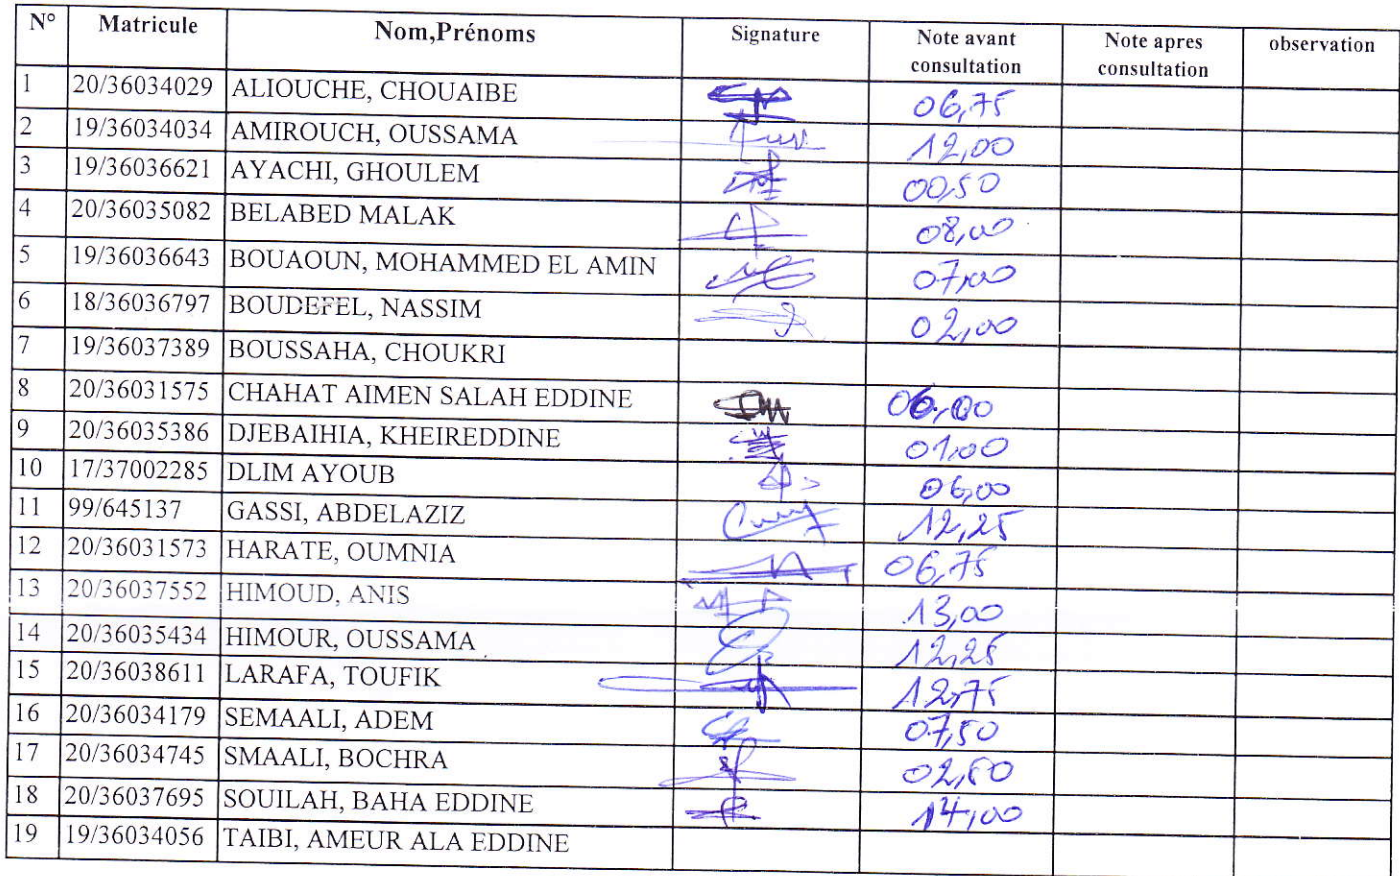 N° Matricule Nom,Prénoms Signature Note avant consultation Note apres consultation observation
1 20/36034029 ALIOUCHE, CHOUAIBE 06,75
2 19/36034034 AMIROUCH, OUSSAMA 12,00
3 19/36036621 AYACHI, GHOULEM 00,50
4 20/36035082 BELABED MALAK 08,00
5 19/36036643 BOUAOUN, MOHAMMED EL AMIN 07,00
6 18/36036797 BOUDEFEL, NASSIM 02,00
7 19/36037389 BOUSSAHA, CHOUKRI
8 20/36031575 CHAHAT AIMEN SALAH EDDINE 06,00
9 20/36035386 DJEBAIHIA, KHEIREDDINE 01,00
10 17/37002285 DLIM AYOUB 06,00
11 99/645137 GASSI, ABDELAZIZ 12,25
12 20/36031573 HARATE, OUMNIA 06,75
13 20/36037552 HIMOUD, ANIS 13,00
14 20/36035434 HIMOUR, OUSSAMA 12,25
15 20/36038611 LARAFA, TOUFIK 12,75
16 20/36034179 SEMAALI, ADEM 07,50
17 20/36034745 SMAALI, BOCHRA 02,50
18 20/36037695 SOUILAH, BAHA EDDINE 14,00
19 19/36034056 TAIBI, AMEUR ALA EDDINE